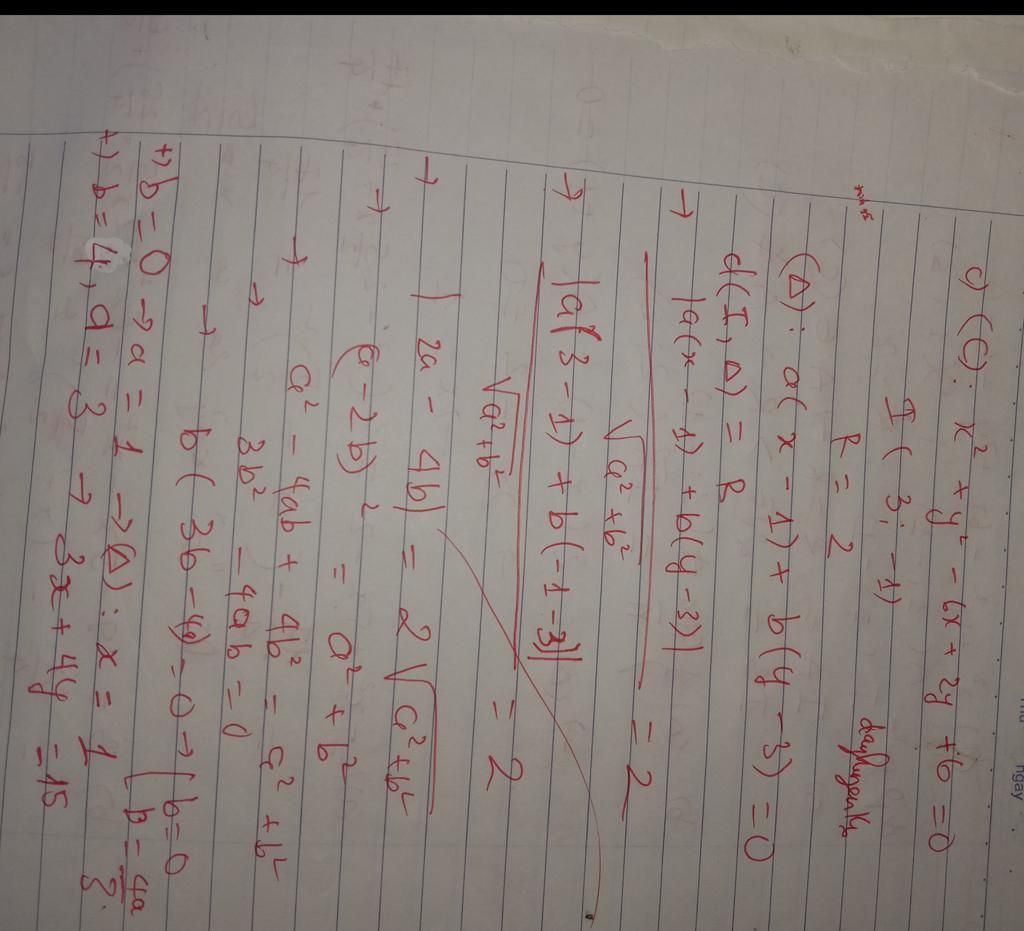 c) (C): x² + y² - 6x + 2y + 6 = 0
I ( 3; -1)
R = 2
(Δ): a( x - 1) + b(y - 3) = 0
d(I, Δ) = R
→ |a(x - 1) + b(y - 3)| / √a² + b² = 2
→ |a(3 - 1) + b(-1 - 3)| / √a² + b² = 2
→ | 2a - 4b| = 2√a² + b²
→ (a - 2b)² = a² + b²
→ a² - 4ab + 4b² = a² + b²
→ 3b² - 4ab = 0
→ b( 3b - 4a) = 0 → [ b = 0
[ b = 4a/3.
+) b = 0 → a = 1 → (Δ): x = 1
+) b = 4, a = 3 → 3x + 4y = 15
ngay